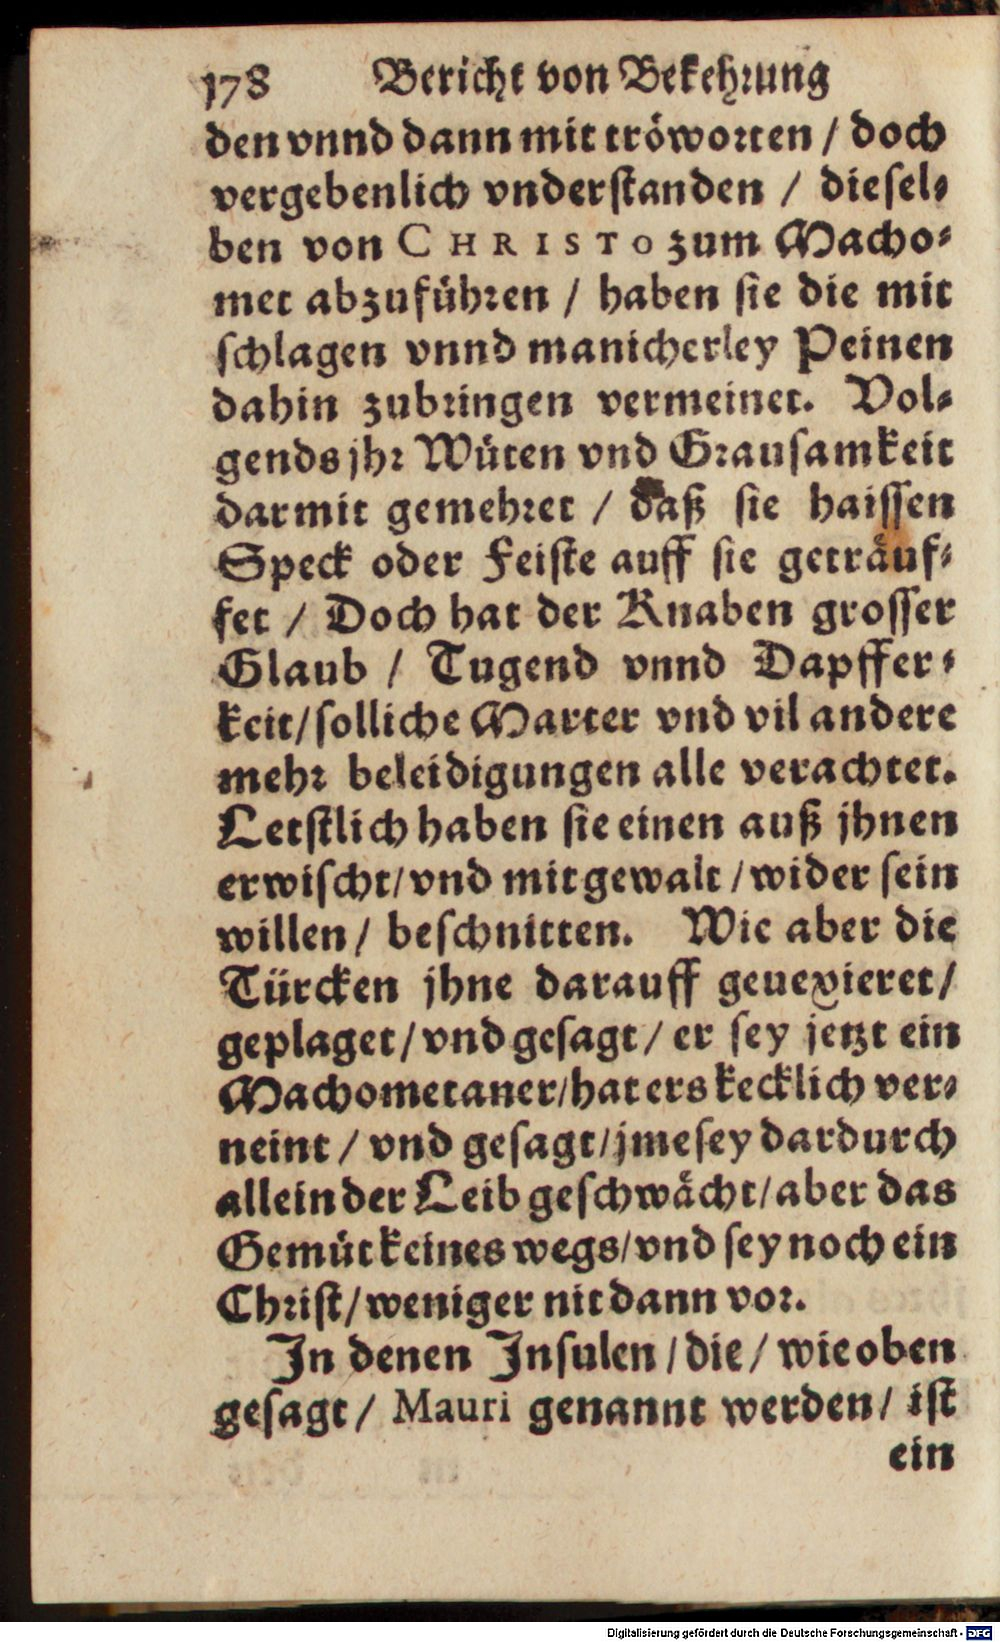 178 Bericht von Bekehrung
den vnnd dann mit tröworten / doch
vergebenlich vnderstanden / diesel-
ben von CHRISTO zum Macho-
met abzuführen / haben sie die mit
schlagen vnnd manicherley Peinen
dahin zubringen vermeinet. Vol-
gends jhr Wüten vnd Grausamkeit
darmit gemehret / daß sie haissen
Speck oder Feiste auff sie geträuf-
fet / Doch hat der Knaben grosser
Glaub / Tugend vnnd Dapffer-
keit/ solliche Marter vnd vil andere
mehr beleidigungen alle verachtet.
Letstlich haben sie einen auß jhnen
erwischt/ vnd mit gewalt / wider sein
willen / beschnitten. Wie aber die
Türcken jhne darauff geuexieret/
geplaget/ vnd gesagt / er sey jetzt ein
Machometaner/ hat ers kecklich ver-
neint / vnd gesagt/ jme sey dardurch
allein der Leib geschwächt/ aber das
Gemüt keines wegs/ vnd sey noch ein
Christ/ weniger nit dann vor.
In denen Insulen / die / wie oben
gesagt / Mauri genannt werden / ist
ein
Digitalisierung gefördert durch die Deutsche Forschungsgemeinschaft - DFG